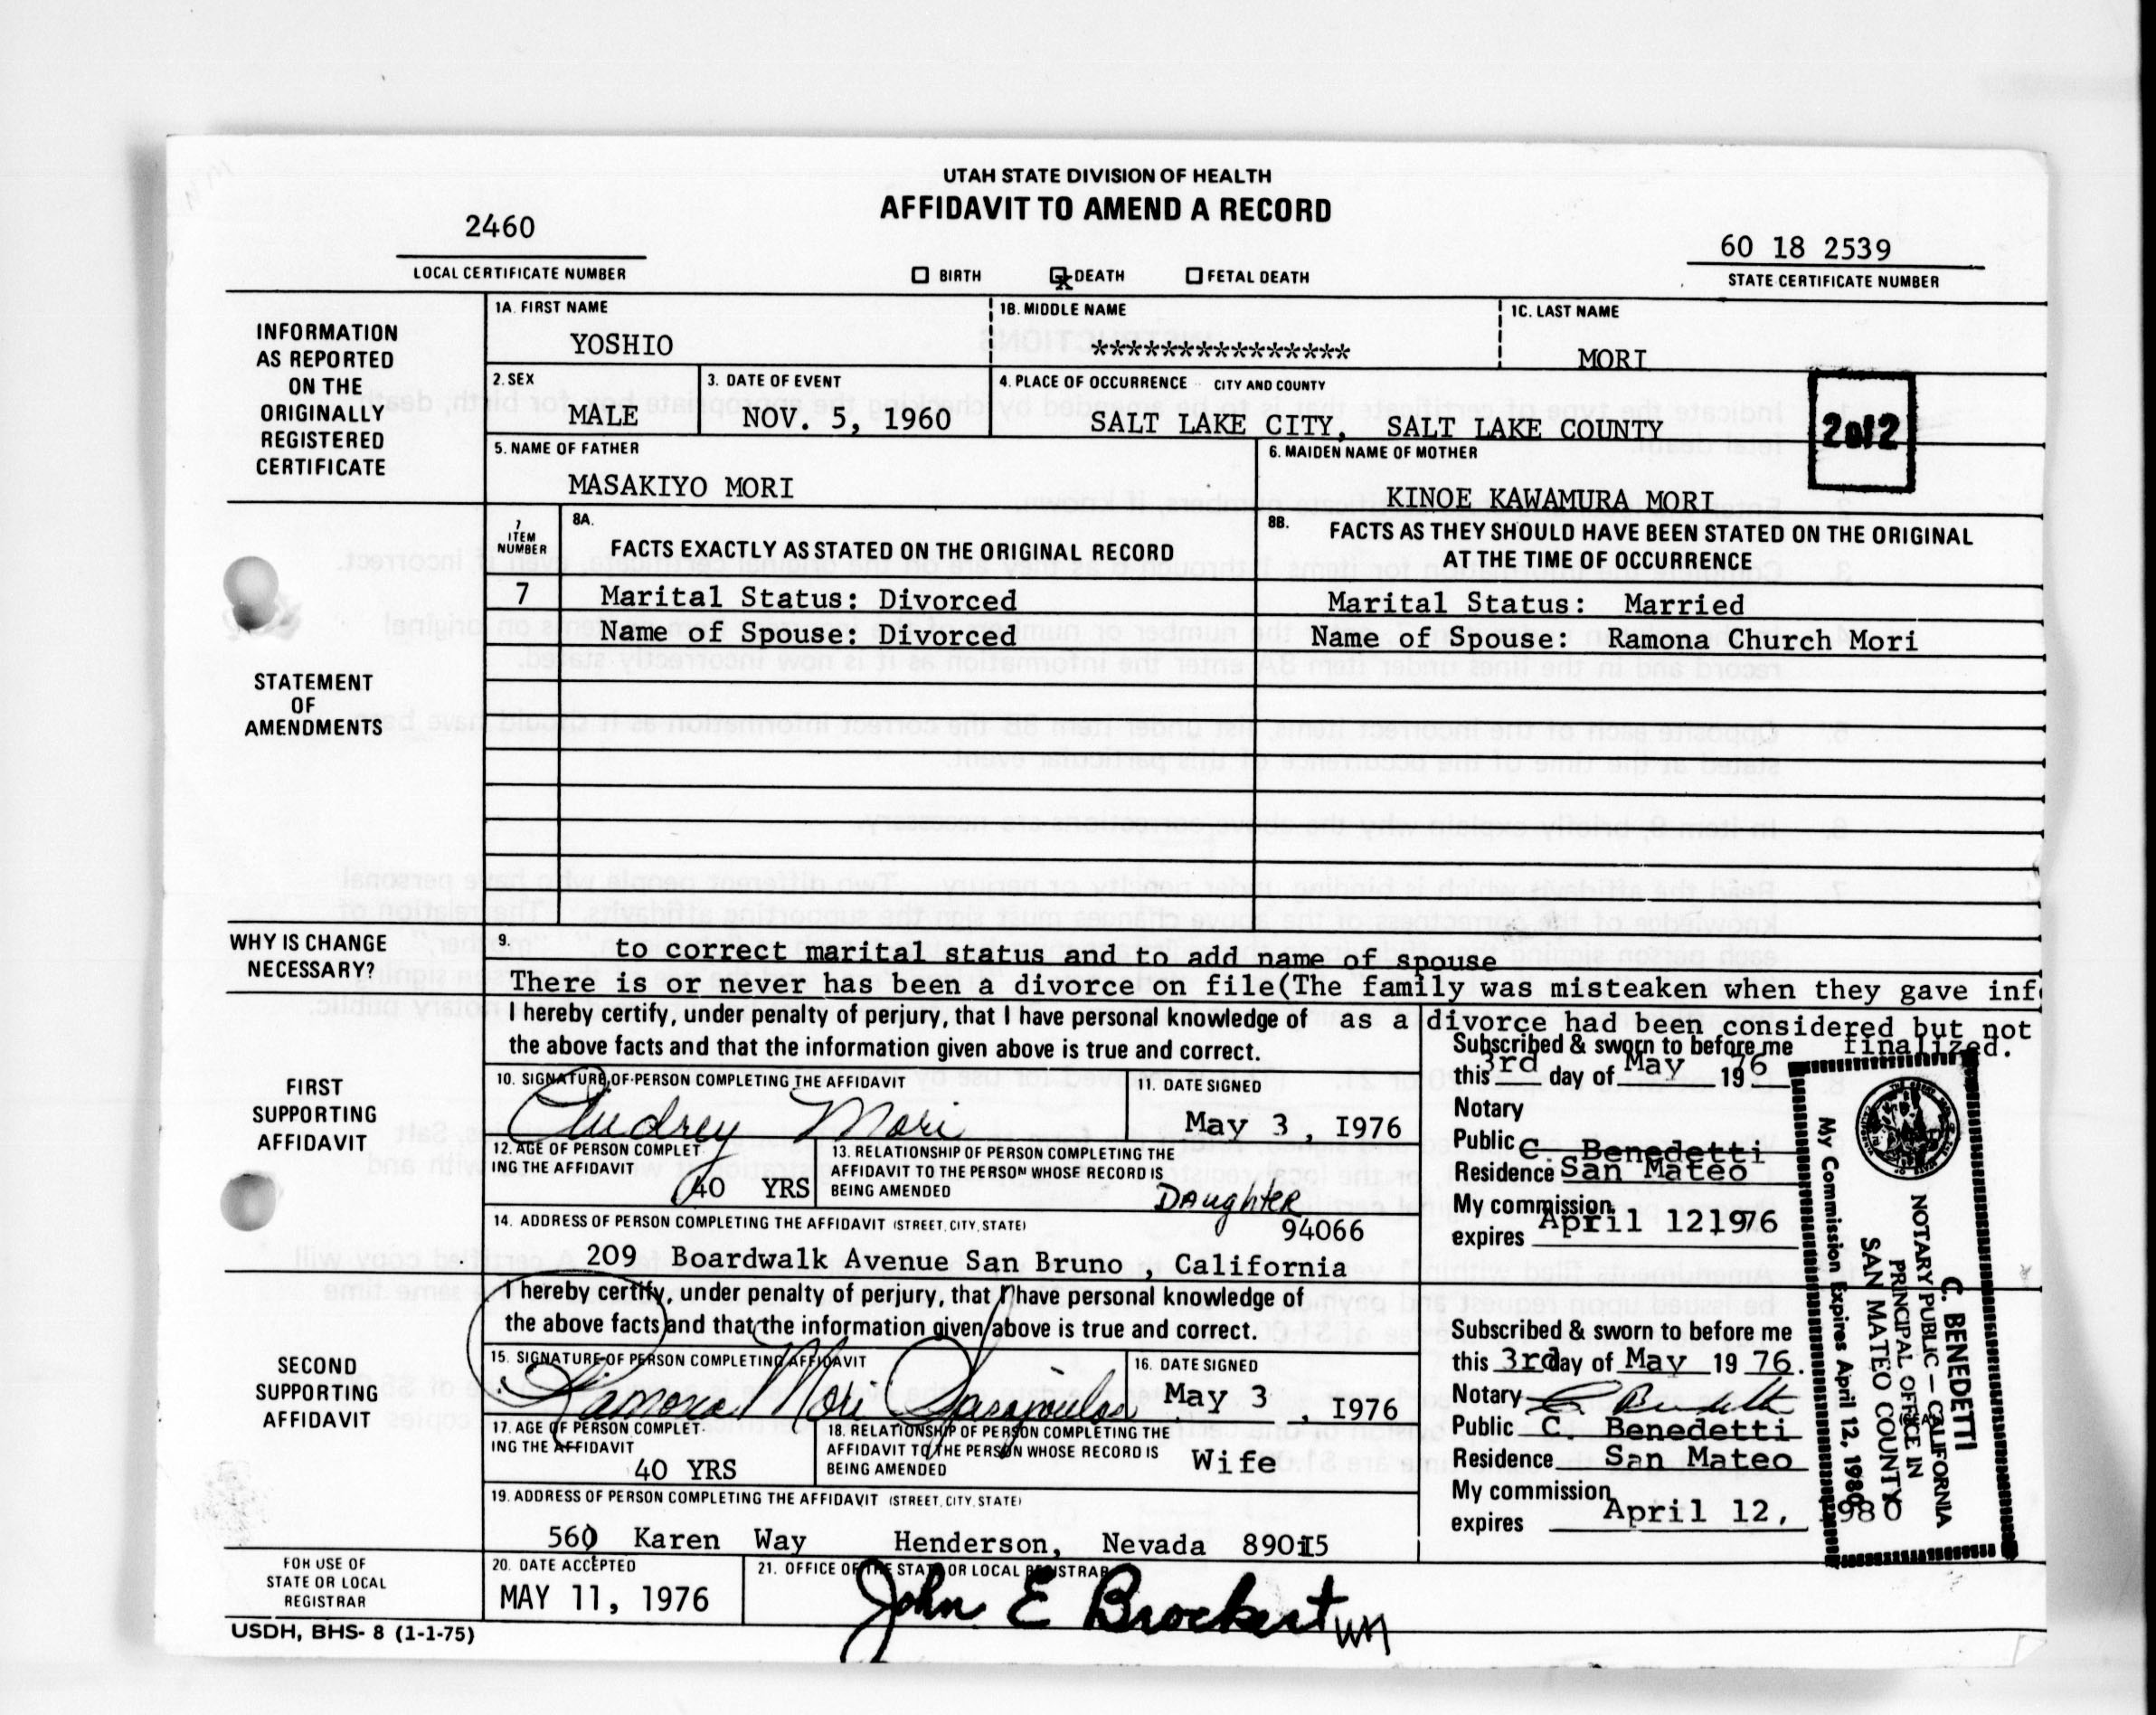 UTAH STATE DIVISION OF HEALTH
AFFIDAVIT TO AMEND A RECORD
2460
LOCAL CERTIFICATE NUMBER
BIRTH
DEATH
FETAL DEATH
60 18 2539
STATE CERTIFICATE NUMBER
INFORMATION
AS REPORTED
ON THE
ORIGINALLY
REGISTERED
CERTIFICATE
1A. FIRST NAME
YOSHIO
1B. MIDDLE NAME
***************
1C. LAST NAME
MORI
2. SEX
MALE
3. DATE OF EVENT
NOV. 5, 1960
4. PLACE OF OCCURRENCE CITY AND COUNTY
SALT LAKE CITY, SALT LAKE COUNTY
2 of 2
5. NAME OF FATHER
MASAKIYO MORI
6. MAIDEN NAME OF MOTHER
KINOE KAWAMURA MORI
STATEMENT
OF
AMENDMENTS
7
ITEM
NUMBER
8A.
FACTS EXACTLY AS STATED ON THE ORIGINAL RECORD
8B.
FACTS AS THEY SHOULD HAVE BEEN STATED ON THE ORIGINAL
AT THE TIME OF OCCURRENCE
7
Marital Status: Divorced
Marital Status: Married
Name of Spouse: Divorced
Name of Spouse: Ramona Church Mori
WHY IS CHANGE
NECESSARY?
9.
to correct marital status and to add name of spouse
There is or never has been a divorce on file(The family was misteaken when they gave inf
as a divorce had been considered but not
finalized.
FIRST
SUPPORTING
AFFIDAVIT
I hereby certify, under penalty of perjury, that I have personal knowledge of
the above facts and that the information given above is true and correct.
10. SIGNATURE OF PERSON COMPLETING THE AFFIDAVIT
Audrey Mori
11. DATE SIGNED
May 3, I976
12. AGE OF PERSON COMPLET-
ING THE AFFIDAVIT
40 YRS
13. RELATIONSHIP OF PERSON COMPLETING THE
AFFIDAVIT TO THE PERSON WHOSE RECORD IS
BEING AMENDED
Daughter
14. ADDRESS OF PERSON COMPLETING THE AFFIDAVIT (STREET, CITY, STATE)
94066
209 Boardwalk Avenue San Bruno , California
Subscribed & sworn to before me
this 3rd day of May 1976
Notary
Public C. Benedetti
Residence San Mateo
My commission
expires April 121976
SECOND
SUPPORTING
AFFIDAVIT
I hereby certify, under penalty of perjury, that I have personal knowledge of
the above facts and that the information given above is true and correct.
15. SIGNATURE OF PERSON COMPLETING AFFIDAVIT
Ramona Mori
16. DATE SIGNED
May 3 , I976
17. AGE OF PERSON COMPLET-
ING THE AFFIDAVIT
40 YRS
18. RELATIONSHIP OF PERSON COMPLETING THE
AFFIDAVIT TO THE PERSON WHOSE RECORD IS
BEING AMENDED
Wife
19. ADDRESS OF PERSON COMPLETING THE AFFIDAVIT (STREET, CITY, STATE)
560 Karen Way Henderson, Nevada 89015
Subscribed & sworn to before me
this 3rd day of May 19 76.
Notary C Benedetti
Public C. Benedetti
Residence San Mateo
My commission
expires April 12, 1980
C. BENEDETTI
NOTARY PUBLIC — CALIFORNIA
PRINCIPAL OFFICE IN
SAN MATEO COUNTY
My Commission Expires April 12, 1980
FOR USE OF
STATE OR LOCAL
REGISTRAR
20. DATE ACCEPTED
MAY 11, 1976
21. OFFICE OF THE STATE OR LOCAL REGISTRAR
John E Brockert
USDH, BHS- 8 (1-1-75)